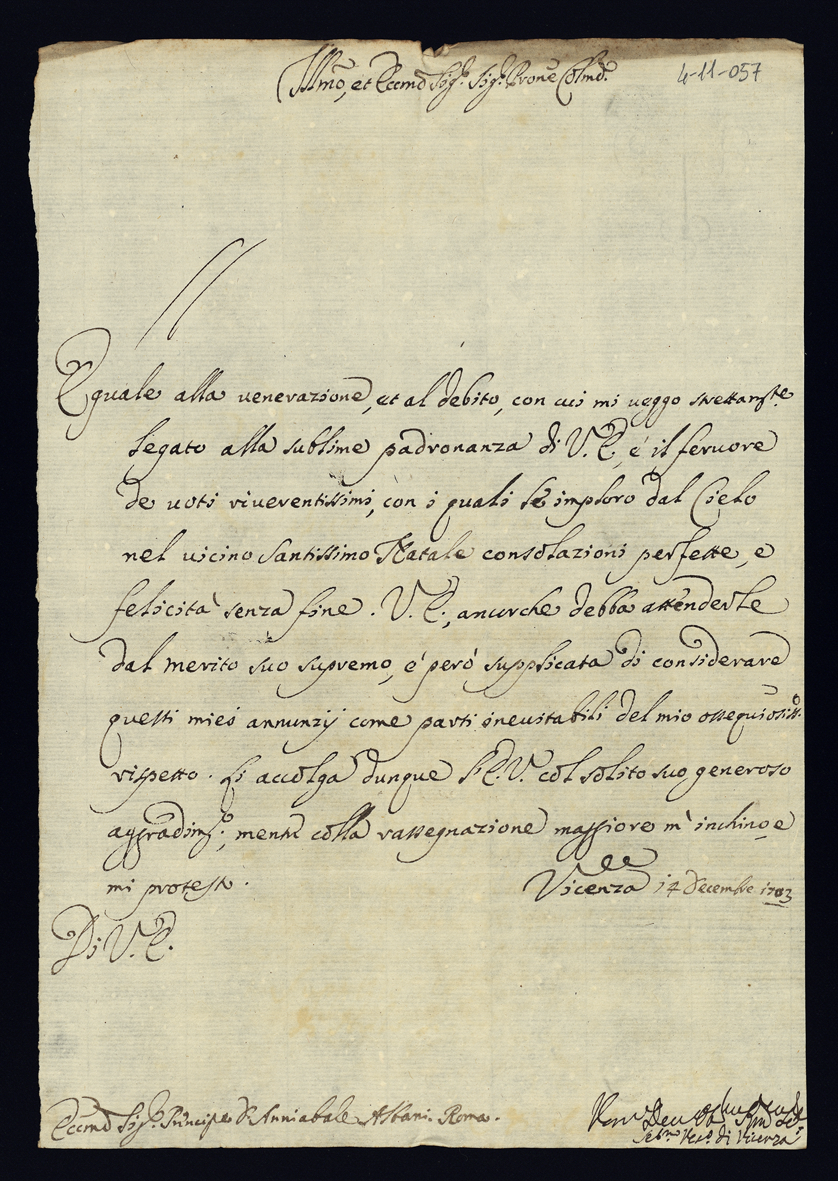 Illmo, et Eccmo Sigr. Sigr. Prone Colmo.
4-11-057
Eguale alla venerazione, et al debito, con cui mi veggo strettamte.
legato alla sublime padronanza di V. E., é il feruore
de uoti riuerentissimi, con i quali le imploro dal Cielo
nel uicino Santissimo Natale consolazioni perfette, e
felicità senza fine. V. E., ancorche debba attenderle
dal merito suo supremo, é però supplicata di considerare
questi miei annunzij come parti ineuitabili del mio ossequiosissmo.
rispetto. Li accolga dunque l'E. V. col solito suo generoso
aggradimto., mentre colla rassegnazione maggiore m'inchino e
mi protesto.
Vicenza 14 Decembre 1703
Di V. E.
Eccmo Sigr. Principe D. Anniabale Albani. Roma.
Vesco. di Vicenza